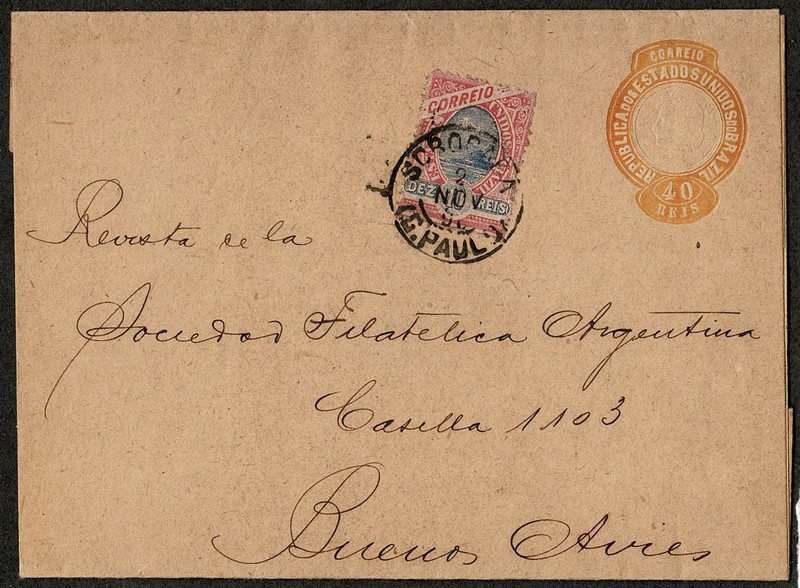 CORREIO
REPUBLICA DOS ESTADOS UNIDOS DO BRAZIL
40
REIS
CORREIO
UNIDOS
DEZ REIS
SOROCABA
2
NOV
(S. PAULO)
Revista de la
Sociedad Filatelica Argentina
Casilla 1103
Buenos Aires